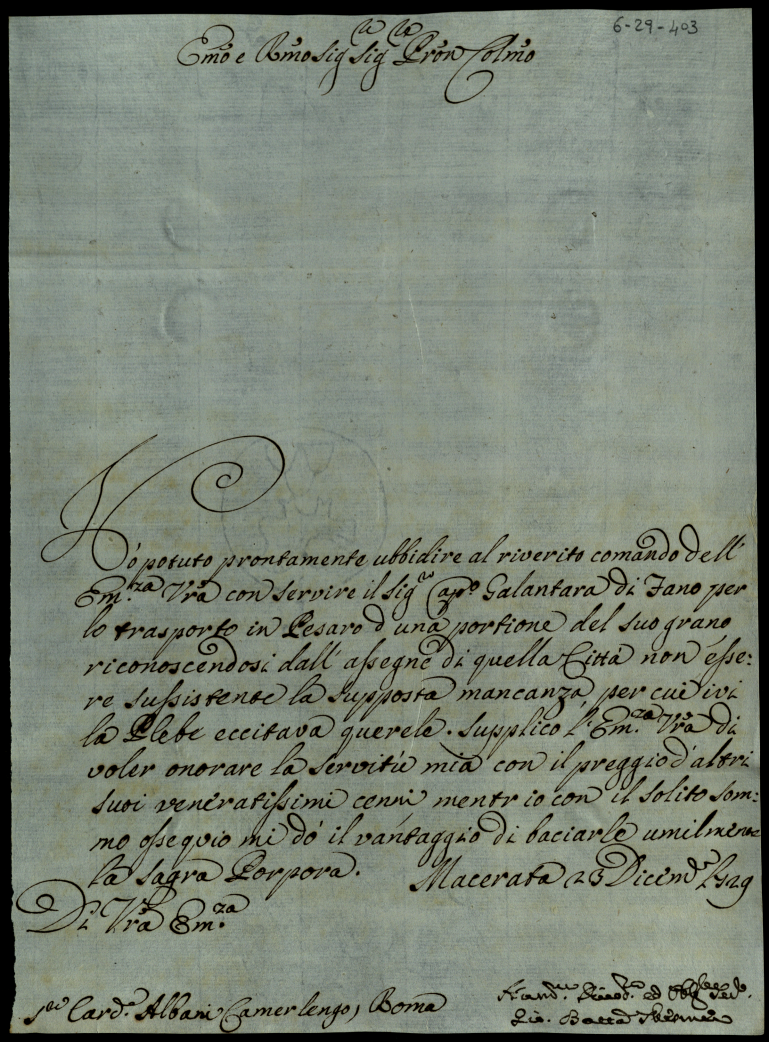 6-29-403
Emo e Rmo Sig Sig Pron Colmo
Hò potuto prontamente ubbidire al riverito comando dell'
Em.za Vra con servire il Sigr Capo Galantara di Fano per
lo trasporto in Pesaro d'una portione del suo grano
riconoscendosi dall'assegne di quella Città non esse:
re sussistente la supposta mancanza, per cui ivi
la Plebe eccitava querele. Supplico l'Em.za Vra di
voler onorare la servitù mia con il preggio d'altri
suoi veneratissimi cenni mentr'io con il solito som:
mo ossequio mi dò il vantaggio di baciarle umilmente
la Sagra Porpora. Macerata 23 Dicembe 1729
Di Vra Em.za
Card.e Albani Camerlengo, Roma